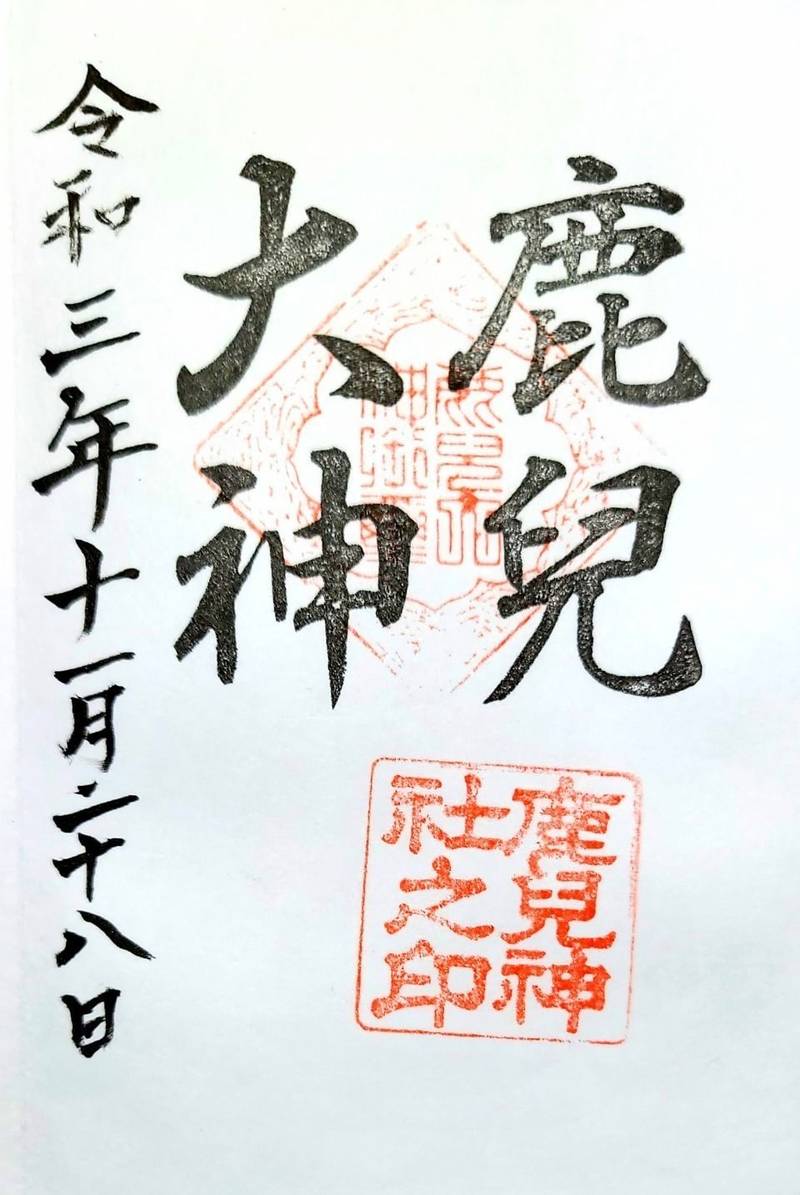 鹿兒
大神
令和三年十一月二十八日
鹿兒神
社之印